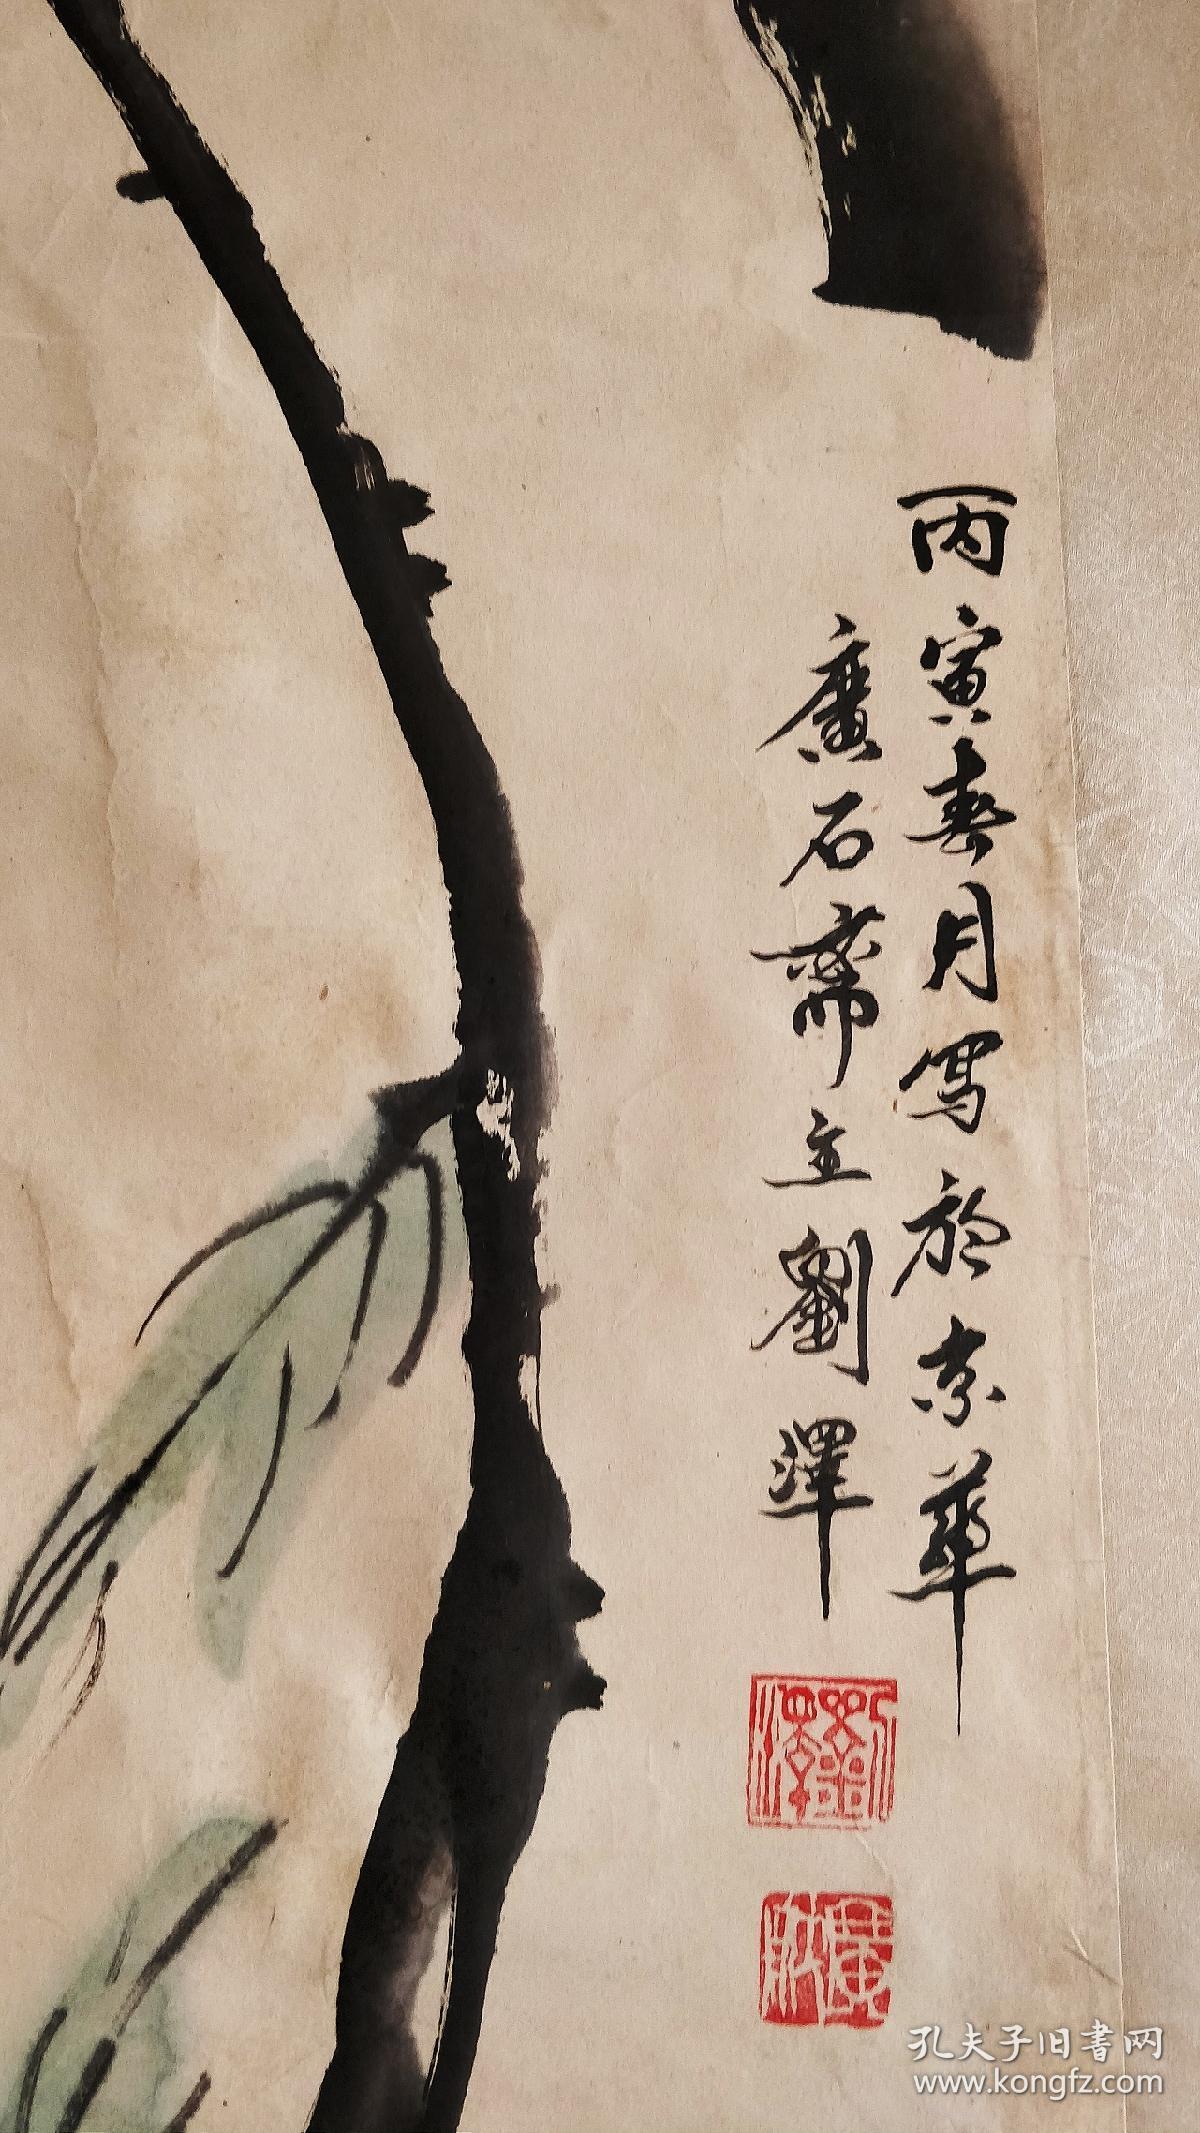 丙寅春月寫於京華
廣石齋主劉澤
孔夫子旧書网
www.kongfz.com